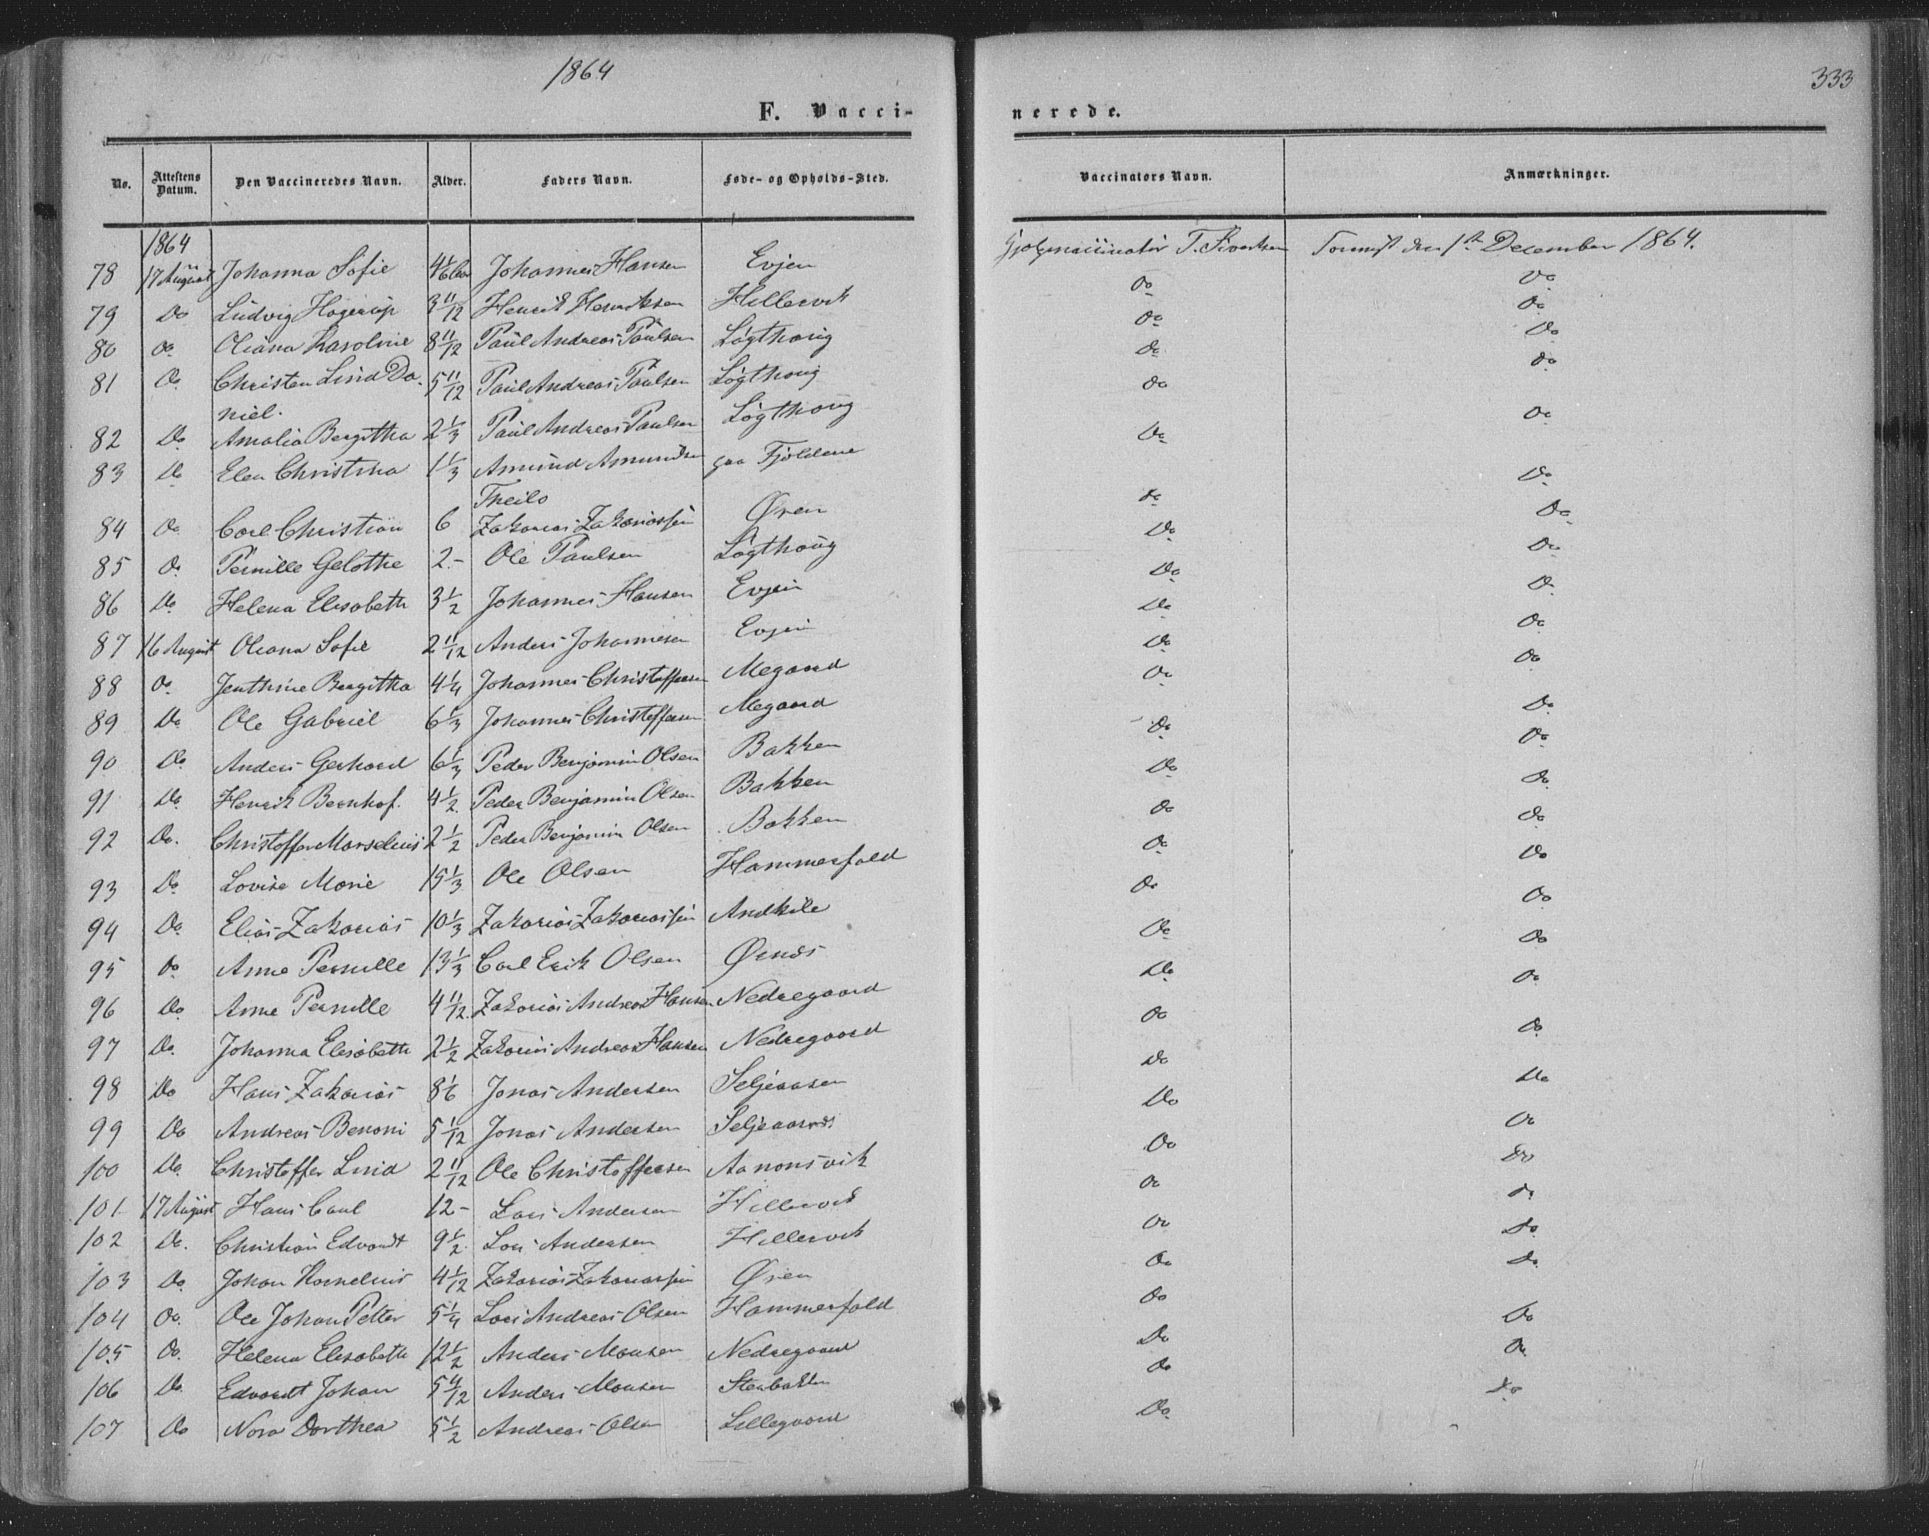 1864
333
F. Vacci-
nerede.
No. Attestens Datum. Den Vaccineredes Navn. Alder. Faders Navn. Føde- og Opholds-Sted. Vaccinators Navn. Anmærkninger.
1864
78 17 August Johanna Sofie 4 1/6 Johannes Hansen Evjen T. Sivertsen 1ste December 1864.
79 Do Ludvig Hagerup 3 11/12 Henrik Henriksen Hillervik Do Do
80 Do Oliana Karoline 8 11/12 Paul Andreas Paulsen Løgthoug Do Do
81 Do Christen Lind Da- 5 11/12 Paul Andreas Paulsen Løgthoug Do Do
niel.
82 Do Amalia Bergitha 2 1/3 Paul Andreas Paulsen Løgthoug Do Do
83 Do Elen Christina 1 1/3 Amund Amundsen paa Fjeldene Do Do
Theilo
84 Do Carl Christian 6 Zakarias Zakariassen Øren Do Do
85 Do Pernille Gelothe 2 - Ole Paulsen Løgthoug Do Do
86 Do Helena Elisabeth 3 1/2 Johannes Hansen Evjen Do Do
87 16 August Oliana Sofie 2 11/12 Anders Johannesen Evjen Do Do
88 Do Jenthine Bergitha 4 1/4 Johannes Christoffersen Megaard Do Do
89 Do Ole Gabriel 6 1/3 Johannes Christoffersen Megaard Do Do
90 Do Anders Gerhard 6 1/3 Peder Benjamin Olsen Bakken Do Do
91 Do Henrik Bernhof. 4 1/2 Peder Benjamin Olsen Bakken Do Do
92 Do. Christoffer Marselius 2 1/2 Peder Benjamin Olsen Bakken Do Do
93 Do Lovise Marie 15 1/3 Ole Olsen Hammerfald Do Do
94 Do Elias Zakarias 10 1/3 Zakarias Zakariassen Andkile Do Do
95 Do Anne Pernille 13 1/3 Carl Erik Olsen Ørnes Do Do
96 Do Anne Pernille 4 11/12 Zakarias Andreas Hansen Nedregaard Do Do
97 Do. Johanna Elisabeth 2 1/2 Zakarias Andreas Hansen Nedregaard Do Do
98 Do Hans Zakarias 8 1/6 Jonas Andersen Seljeaasen Do Do
99 Do Andreas Benoni 5 1/12 Jonas Andersen Seljeaasen Do Do
100 Do Christoffer Lind 2 11/12 Ole Christoffersen Aanonsvik Do Do
101 17 August Hans Carl 12 - Lars Andersen Hillervik Do Do
102 Do. Christian Edvardt 9 1/2 Lars Andersen Hillervik Do Do
103 Do Johan Kornelius 4 1/12 Zakarias Zakariassen Øren Do Do
104 Do. Ole Johan Petter 5 1/4 Lars Andreas Olsen Hammerfald Do Do
105 Do. Helena Elisabeth 12 1/2 Anders Monsen Nedregaard Do Do
106 Do Edvardt Johan 5 4/12 Anders Monsen Stenbakken Do Do
107 Do Nora Dorthea 5 1/2 Andreas Olsen Lillegaard Do